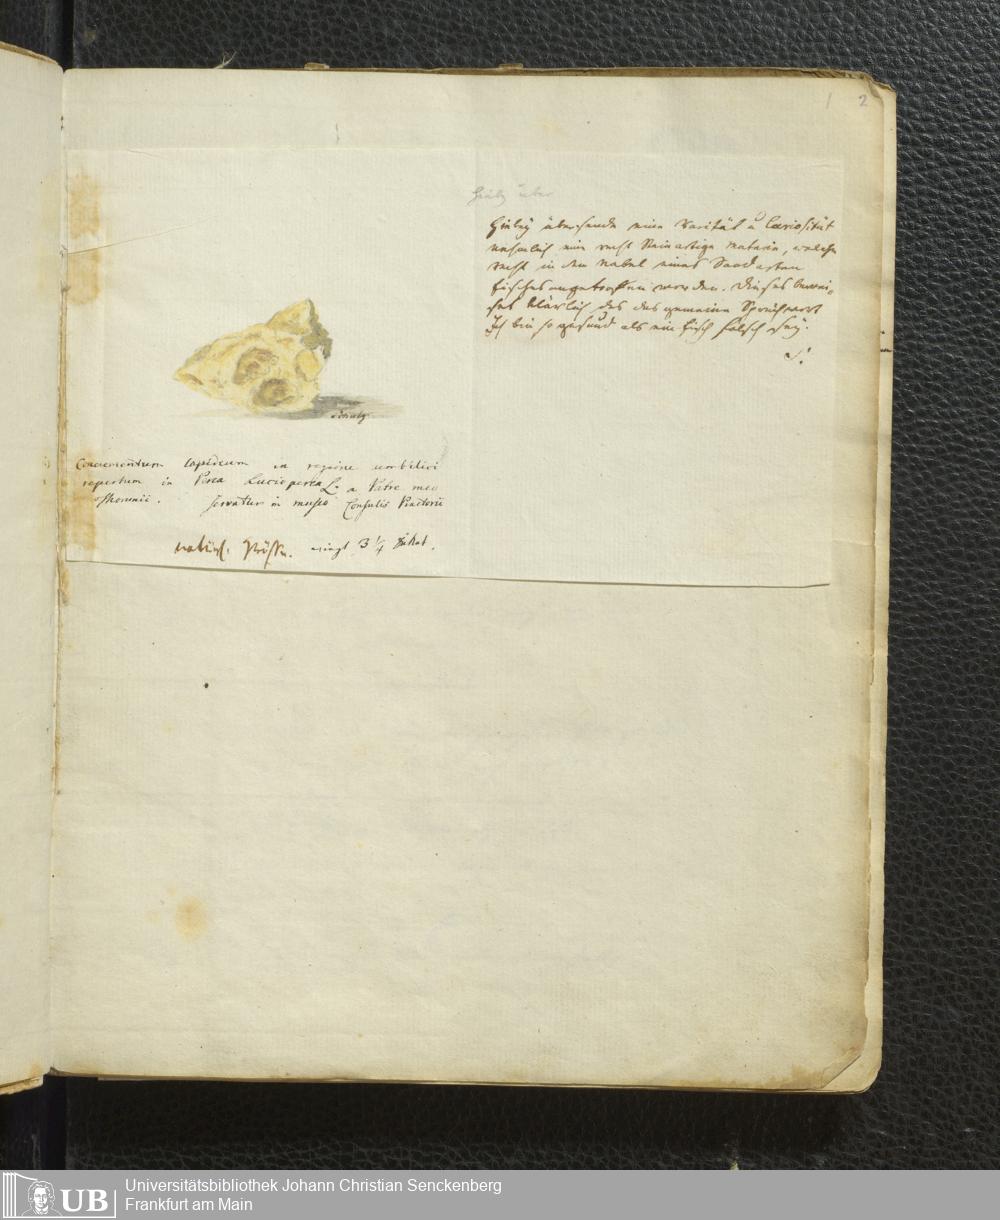 1 2
Hieby über
Hieby übersende eine Rarität u Curiosität
nehmlich eine recht Steinartige materie, welche
recht in dem nabel eines Sandarten
fisches angetroffen worden. Dieses bewei-
set klärlich das das gemeine Sprichwort
Ich bin so gesund als ein fisch falsch sey.
S.
Schultz
Concrementum lapideum in regione umbilici
repertum in Perca Lucioperca L. a Patre meo
servatur in museo Consulis Pinctorii
natürl. Größe. wiegt 3 1/4 Dukat.
Universitätsbibliothek Johann Christian Senckenberg
UB Frankfurt am Main